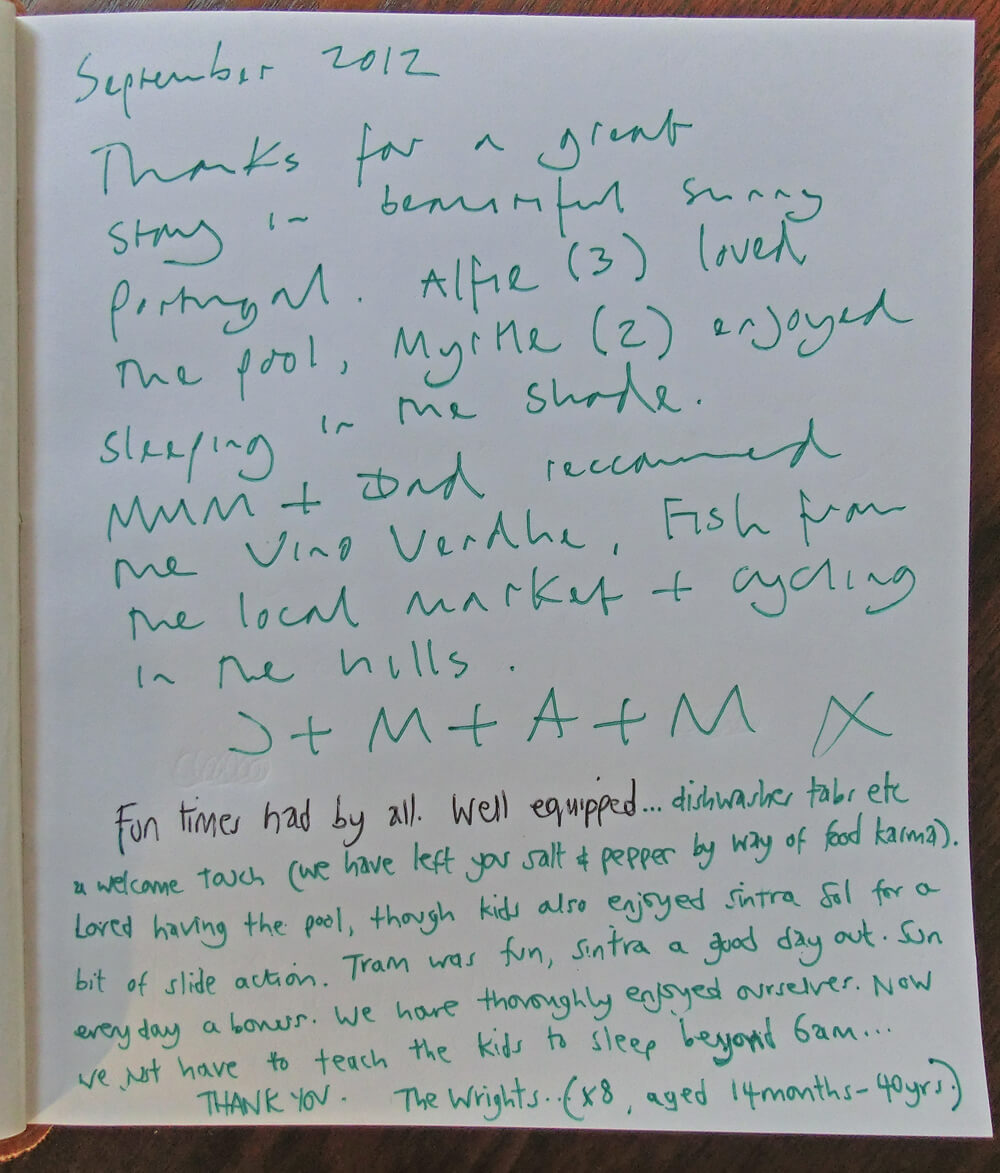 September 2012
Thanks for a great
stay in beautiful sunny
Portugal. Alfie (3) loved
the pool, Myrtle (2) enjoyed
sleeping in the shade.
MUM + Dad reccommed
the Vino Verdhe, Fish from
the local market + cycling
in the hills.
J + M + A + M X
Fun times had by all. Well equipped... dishwasher tabs etc
a welcome touch (we have left you salt & pepper by way of food karma).
Loved having the pool, though kids also enjoyed Sintra Sol for a
bit of slide action. Tram was fun, Sintra a good day out. Sun
every day a bonus. We have thoroughly enjoyed ourselves. Now
we just have to teach the kids to sleep beyond 6am...
THANK YOU. The Wrights.. (x8, aged 14months-40yrs.)